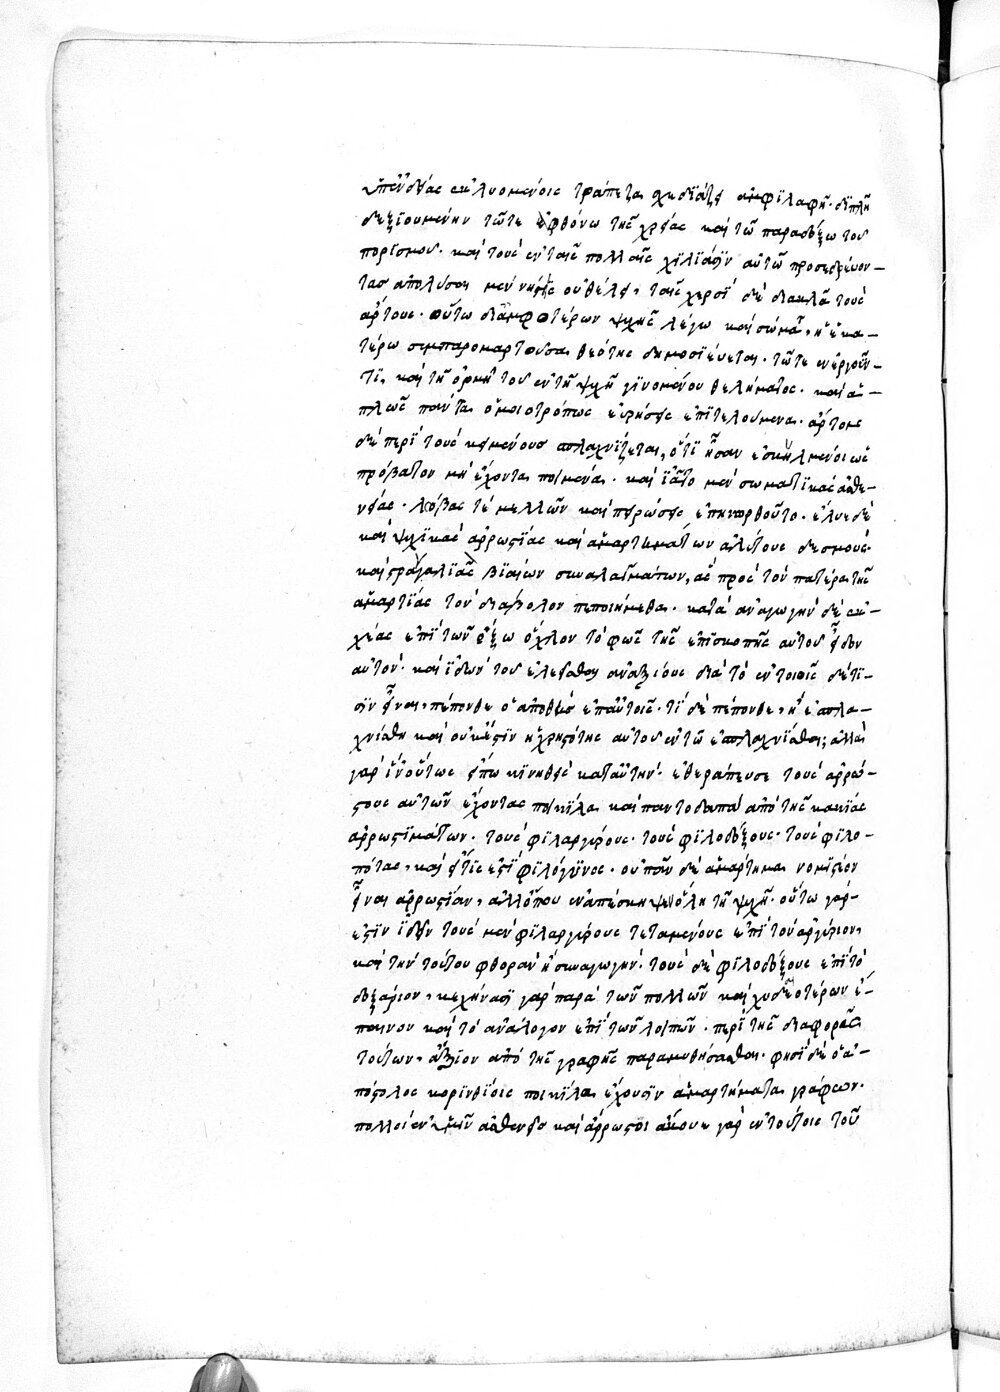 ὑπ' ἐνδείας ἐκλυομένοις τράπεζα σχεδιάζει ἀμφιλαφῆ. διπλῆ
δεξιουμένην τῶ τε ἀφθόνω τῆς χρείας καὶ τῶ παραδόξω τοῦ
πορισμοῦ. καὶ τοὺς ἐν ταῖς πολλαῖς χιλιάσιν αὐτῶ προσεδρεύον-
τας ἀπολῦσαι μὲν νήστεις οὐ θέλει, ταῖς χερσὶ δὲ διακλᾶ τοὺς
ἄρτους. οὕτω δι' ἀμφοτέρων ψυχῆς λέγω καὶ σώματος, ἡ ἑκα-
τέρω συμπαρομαρτοῦσα θεότης δημοσιεύεται. τῶ τε ἐνεργοῦν-
τι, καὶ τῆ ὁρμῆ τοῦ ἐν τῆ ψυχῆ γινομένου θελήματος. καὶ ἁ-
πλῶς πάντα ὁμοιοτρόπως εὑρήσεις ἐπιτελούμενα.
δὲ περὶ τοὺς κειμένους σπλαχνίζεται, ὅτι ἦσαν ἐσκυλμένοι ὡς
πρόβατον μὴ ἔχοντα ποιμένα. καὶ ἰᾶτο μὲν σωματικὰς ἀσθε-
νείας. λώβας τὲ μελλῶν καὶ πηρώσεις ἐπηνωρθοῦτο. ἔλυε δὲ
καὶ ψυχικὰς ἀρρωστίας καὶ ἁμαρτημάτων ἀλύτους δεσμούς.
καὶ στραγγαλιὰς βιαίων συναλλαγμάτων, ἃς πρὸς τὸν πατέρα τῆς
ἁμαρτίας τὸν διάβολον πεποιήμεθα. κατὰ ἀναγωγὴν δὲ
ἐπὶ τῶν ἔξω ὄχλον τὸ φῶς τῆς ἐπισκοπῆς αὐτοῦ εἶδεν
αὐτόν. καὶ ἰδὼν τοῦ ἐλεεῖσθαι ἀναξίους διὰ τὸ ἐν τοιοῖς δέ τι-
σιν εἶναι, πέπονθε ὁ ἀπαθὴς ἐπ' αὐτοῖς. τί δὲ πέπονθε, ἢ ἐσπλα-
χνίσθη καὶ οὐκ ἔστιν ἡ χρηστότης αὐτοῦ ἐν τῶ ἐσπλαχνίσθαι; ἀλλὰ
γὰρ ἵν' οὕτως εἴπω κινηθεὶς κατ' αὐτὴν. ἐθεράπευσε τοὺς ἀρρώ-
στους αὐτῶν ἔχοντας ποικίλα καὶ παντοδαπὰ ἀπὸ τῆς κακίας
ἀρρωστημάτων. τοὺς φιλαργύρους. τοὺς φιλοδόξους. τοὺς φιλο-
πότας, καὶ εἴ τις ἐστὶ φιλόγυνος. οὐ πᾶν δὲ ἁμάρτημα νομιστέον
εἶναι ἀρρωστίαν, ἀλλ' ὅπου ἐναπέσκηψεν ὅλη τῆ ψυχῆ. οὕτω γάρ-
ἐστιν ἰδεῖν τοὺς μὲν φιλαργύρους τεταμένους ἐπὶ τὸν ἀργύριον,
καὶ τὴν τούτου φθορὰν ἢ συναγωγήν. τοὺς δὲ φιλοδόξους ἐπὶ τὸ
δοξάριον, κεχήνασι γὰρ παρὰ τῶν πολλῶν καὶ χυδαιοτέρων ἔ-
παινον καὶ τὸ ἀνάλογον ἐπὶ τῶν λοιπῶν. περὶ τῆς διαφορᾶς
τούτων, ἄξιον ἀπὸ τῆς γραφῆς παραμυθήσασθαι. φησὶ δὲ ὁ ἀ-
πόστολος κορινθίοις ποικίλα ἔχουσιν ἁμαρτήματα γράφων.
πολλοὶ ἐν ὑμῖν ἀσθενεῖς καὶ ἄρρωστοι ἄκουε γὰρ ἐν τούτοις τοῦ